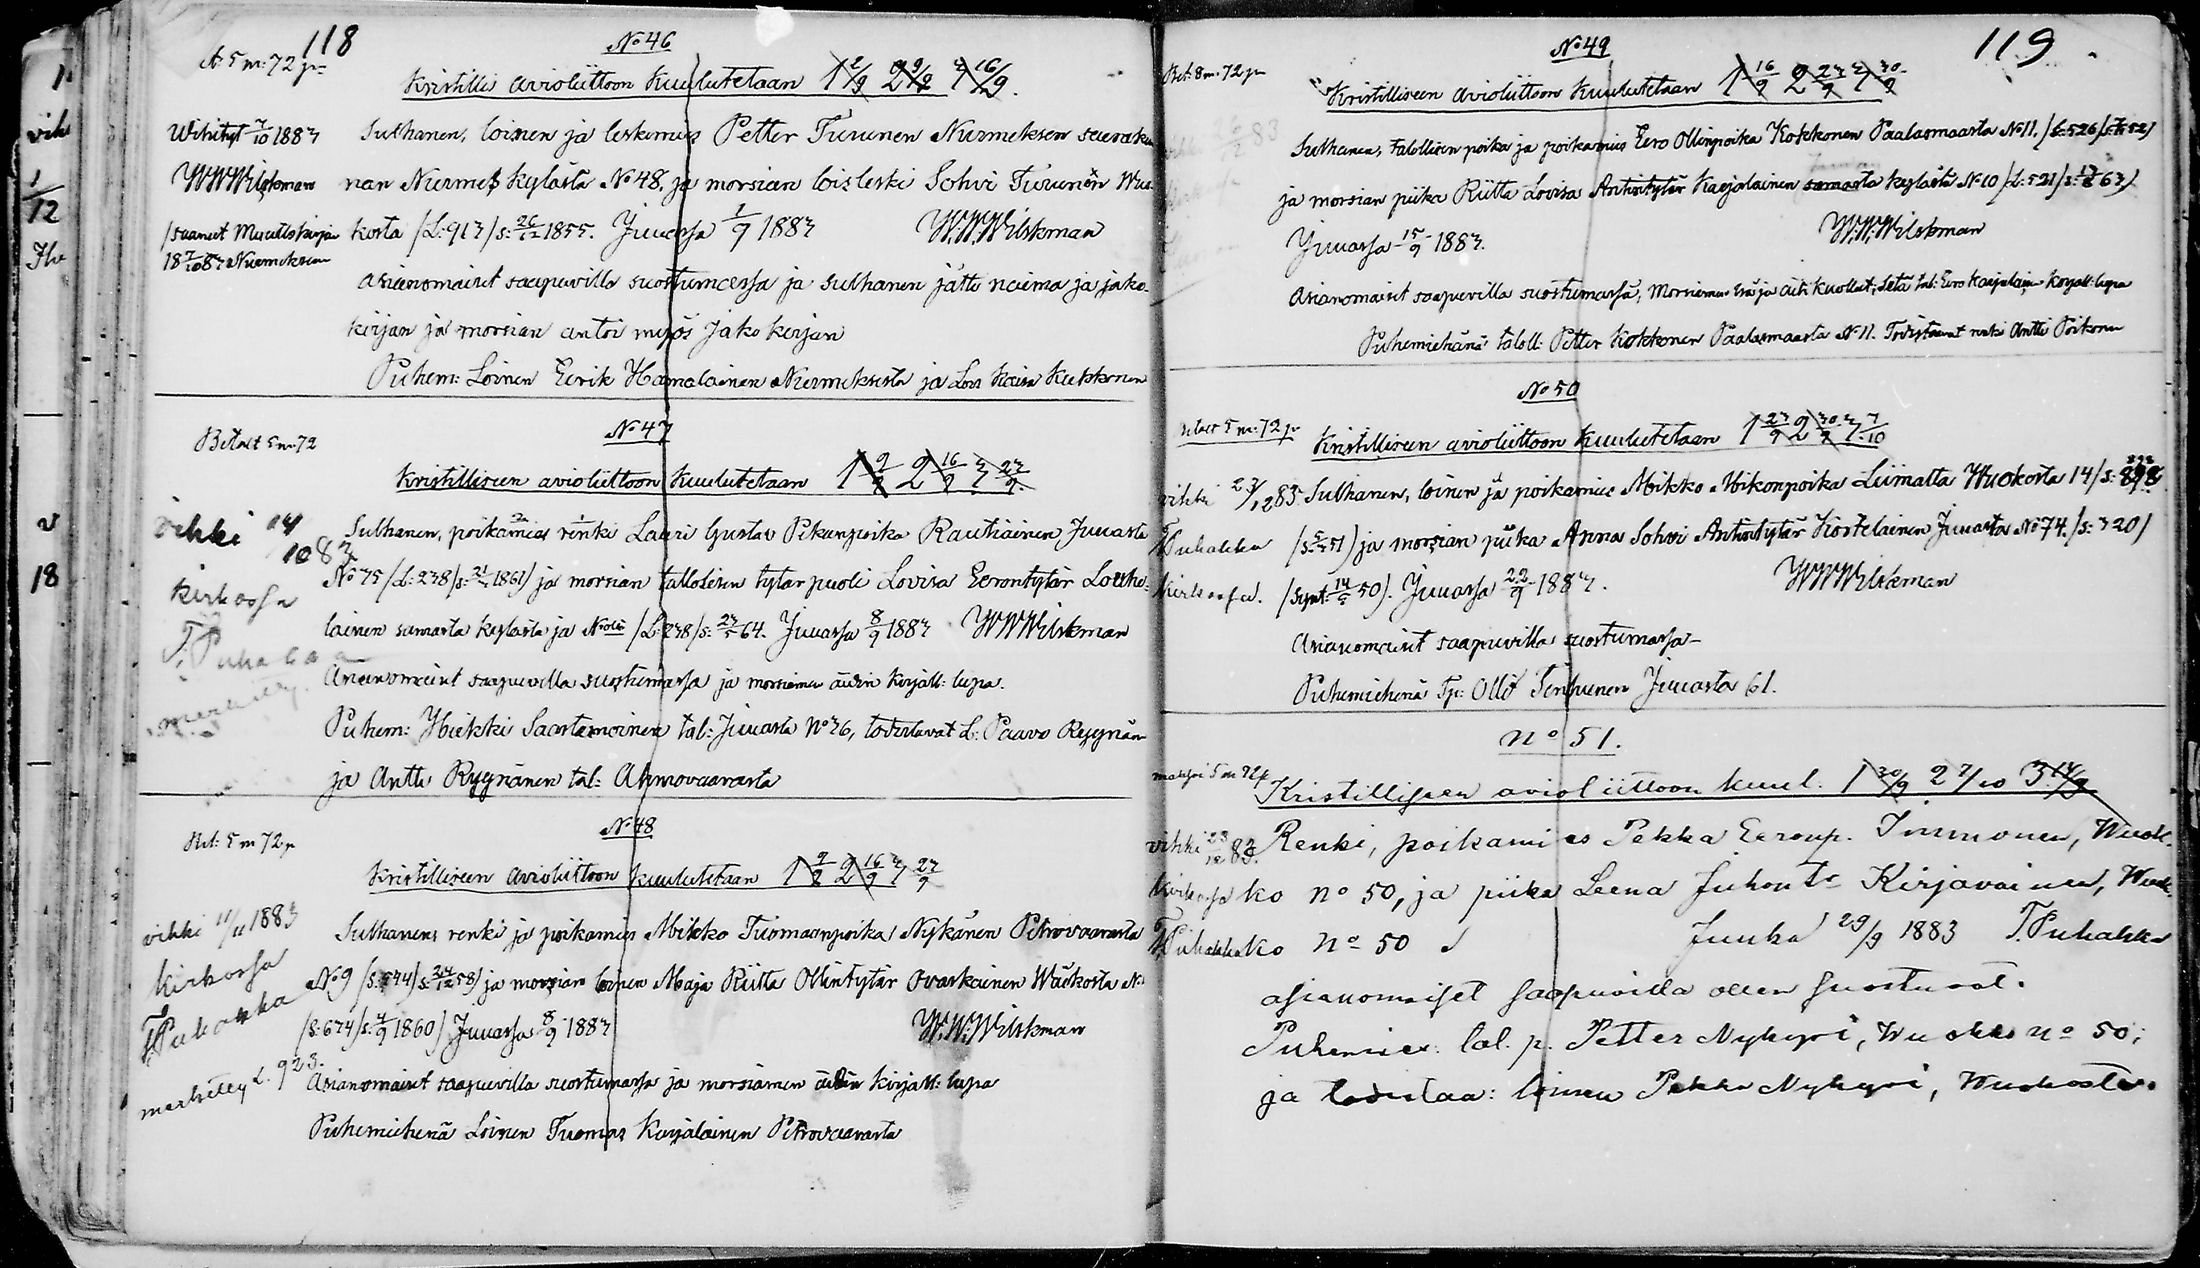 118
№ 46
A: 5 m: 72 p:
Kristilli avioliittoon Kuulutetaan 1 2/9 2 9/9 3 16/9.
Wihityt 7/10 1883
W.W.Wilskman
Sulhanen, loinen ja leskimies Petter Turunen Nurmeksen seuraku
nan Nurmes kylästä № 48, ja morsian loisleski Sohvi Turunen Wuo
kosta /L: 913/ s: 26/12 1855. Juuassa 1/9 1883 W.W.Wilskman
/saaneet Muuttokirjan
18 7/10 83 Nurmeksen
Asianomaiset saapuvilla suostumassa ja sulhanen jätti naima ja jako-
kirjan ja morsian antoi myös jako kirjan
Puhem: Loinen Eerik Hämäläinen Nurmeksesta ja Lois Kaisa Kukkonen
№ 47
Betalt 5 m. 72
Kristilliseen avioliittoon Kuulutetaan 1 9/9 2 16/9 3 23/9
vihki 14/10 83
kirkossa
T. Puhakka
merkitty.
Sulhanen, poikamies renki Lauri Gustav Pekanpoika Rautiainen Juuasta
№ 75 /L: 238/ s: 21/ 1861/ ja morsian tallollisen tytär puoli Lovisa Eerontytär Louhe-
lainen samasta kylästä ja №olis /L: 238/ s: 23/5 64. Juuassa 8/9 1883 W.W.Wilskman
Asianomaiset saapuvilla suostumassa ja morsiamen äidin kirjall: lupa.
Puhem: Heikki Saastamoinen tal: Juuasta № 26, todistavat L: Paavo Ryynän
ja Antti Ryynänen tal: Ahmovaarasta
№ 48
Bet: 5 m 72 p
Kristilliseen avioliittoon kuulutetaan 1 9/9 2 16/9 3 23/9
vihki 11/11 1883
kirkossa
T. Puhakka
merkitty L. 923.
Sulhanen, renki ja poikamies Mikko Tuomaanpoika Nykänen Petrovaarasta
№ 9 /S: 544/ s: 24/12 58/ ja morsian loinen Maja Riitta Ollintytär Ovaskainen Wuokosta №
/S: 674/ s: 4/9 1860) Juuassa 8/9 1883 W.W.Wilskman
Asianomaiset saapuvilla suostumassa ja morsiamen äidin kirjall: lupa
Puhemiehenä Loinen Tuomas Karjalainen Petrovaarasta
119
№ 49
Bet: 8 m. 72 p
Kristilliseen avioliittoon Kuulutetaan 1 16/9 2 23/9 3 30/9
Sulhanen, talollisen poika ja poikamies Eero Ollinpoika Kokkonen Paalasmaasta № 11. /S: 526/
ja morsian piika Riitta Lovisa Antintytär Karjalainen samasta kylästä № 10 /L: 521/
Juuassa 15/9 1883. W.W.Wilskman
Asianomaiset saapuvilla suostumassa, Morsiamen Isä ja äiti kuollut, Setä tal: Eero Karjalaisen kirjall: lupa
Puhemiehänä taloll: Petter Kokkonen Paalasmaasta № 11. Todistavat renki Antti Poikonen
№ 50
Betalt 5 m: 72 p
Kristilliseen avioliittoon Kuulutetaan 1 23/9 2 30/9 3 7/10
vihki 23/12 83
T. Puhakka
kirkossa.
Sulhanen, loinen ja poikamies Mikko Mikonpoika Liimatta Wuokosta 14/S: 898
/s: 5/ 51) ja morsian piika Anna Sohvi Antintytär Kostelainen Juuasta № 74. /S: 320/
(synt: 14/ 50). Juuassa 22/9 1883. W.W.Wilskman
Asianomaiset saapuvilla suostumassa-
Puhemiehenä Tp: Olli Tenhunen Juuasta 61.
№ 51.
maksoi 5 m 72 p
Kristillisen avioliittoon kuul. 1 30/9 2 7/10 3. 14/9
vihki 23/12 83.
kirkossa
T. Puhakka
Renki, poikamies Pekka Eeronp. Timonen, Wuok-
ko № 50, ja piika Leena Juhont: Kirjavainen, Wuok-
ko № 50 Juuka 29/9 1883 T. Puhakka
asianomaiset saapuvilla ollen suostuvat.
Puhemies: tal. p. Petter Nykyri, Wuokko № 50;
ja todistaa: loinen Pekka Nykyri, Wuokosta.